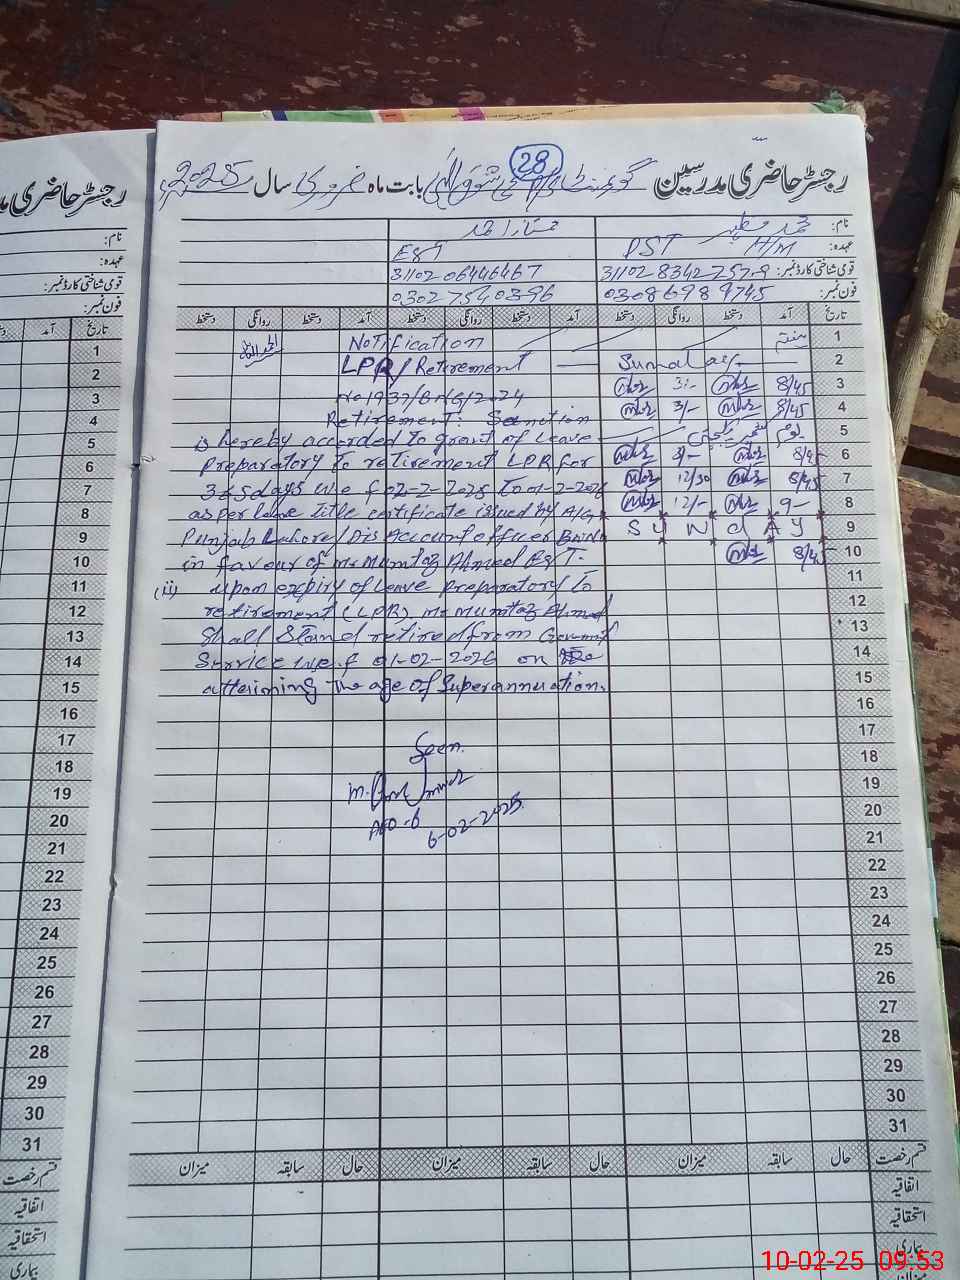 28
رجسٹر حاضری مدرسین گورنمنٹ بابت ماہ فروری سال 2025ء
نام: محمد ممتاز احمد
عہدہ: PST H/M EST
قومی شناختی کارڈ نمبر: 31102-8342757-9 31102 06446467
فون نمبر: 03086989745 03027540396
تاریخ آمد دستخط روانگی دستخط آمد دستخط روانگی دستخط آمد دستخط روانگی دستخط
1 Notification
2 Sunday LPR/Retirement
3 8/45 3/-
4 8/45 3/- Retirement: Sanction
5 یوم یکجہتی کشمیر is hereby accorded to grant of Leave
6 8/45 3/- preparatory to retirement LPR for
7 8/45 12/30 365 days w.e.f 02-2-2025 to 01-2-2026
8 9- 12/- as per leave title certificate issued by A/G
9 SUNDAY Punjab Lahore/Dis Account officer BWN
10 8/45 in favour of Mr Mumtaz Ahmed EST.
11 (ii) upon expiry of Leave preparatory to
12 retirement (LPR), Mr Mumtaz Ahmed
13 Shall Stand retired from Government
14 Service w.e.f 01-02-2026 on the
15 attaining the age of Superannuation.
16
17 Seen.
18
19
20 AEO-6 6-02-2025
21
22
23
24
25
26
27
28
29
30
31
قسم رخصت حال سابقہ میزان حال سابقہ میزان حال سابقہ میزان
اتفاقیہ
استحقاقیہ
بیماری
میزان
رجسٹر حاضری مد
نام:
عہدہ:
قومی شناختی کارڈ نمبر:
فون نمبر:
تاریخ آمد
1
2
3
4
5
6
7
8
9
10
11
12
13
14
15
16
17
18
19
20
21
22
23
24
25
26
27
28
29
30
31
قسم رخصت
اتفاقیہ
استحقاقیہ
بیماری
10-02-25 09:53